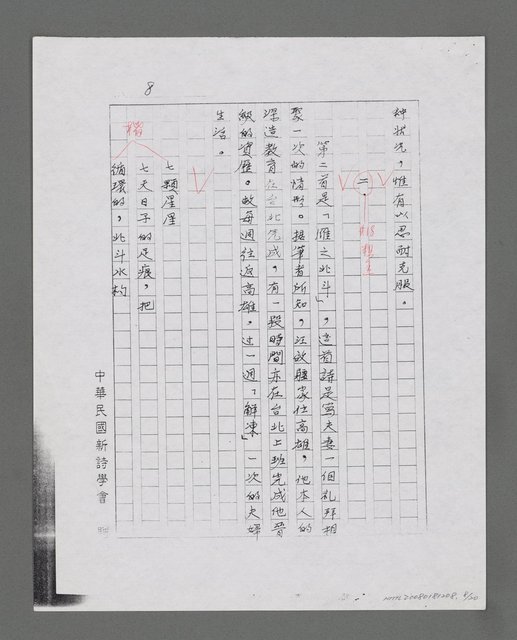 8
種狀况，惟有以忍耐克服。
二、
第二首是「雁之北斗」，這首詩是寫夫妻一個礼拜相
聚一次的情形。據筆者所知，汪啟疆家住高雄，他本人的
深造教育在台北完成，有一段時間亦在台北上班完成他晉
級的資歷。故每週往返高雄，过一週「解凍」一次的夫婦
生活。
七顆星星
七天日子的足痕，把
循環的，北斗水杓
中華民國新詩學會
NMTL20080181208. 8/20